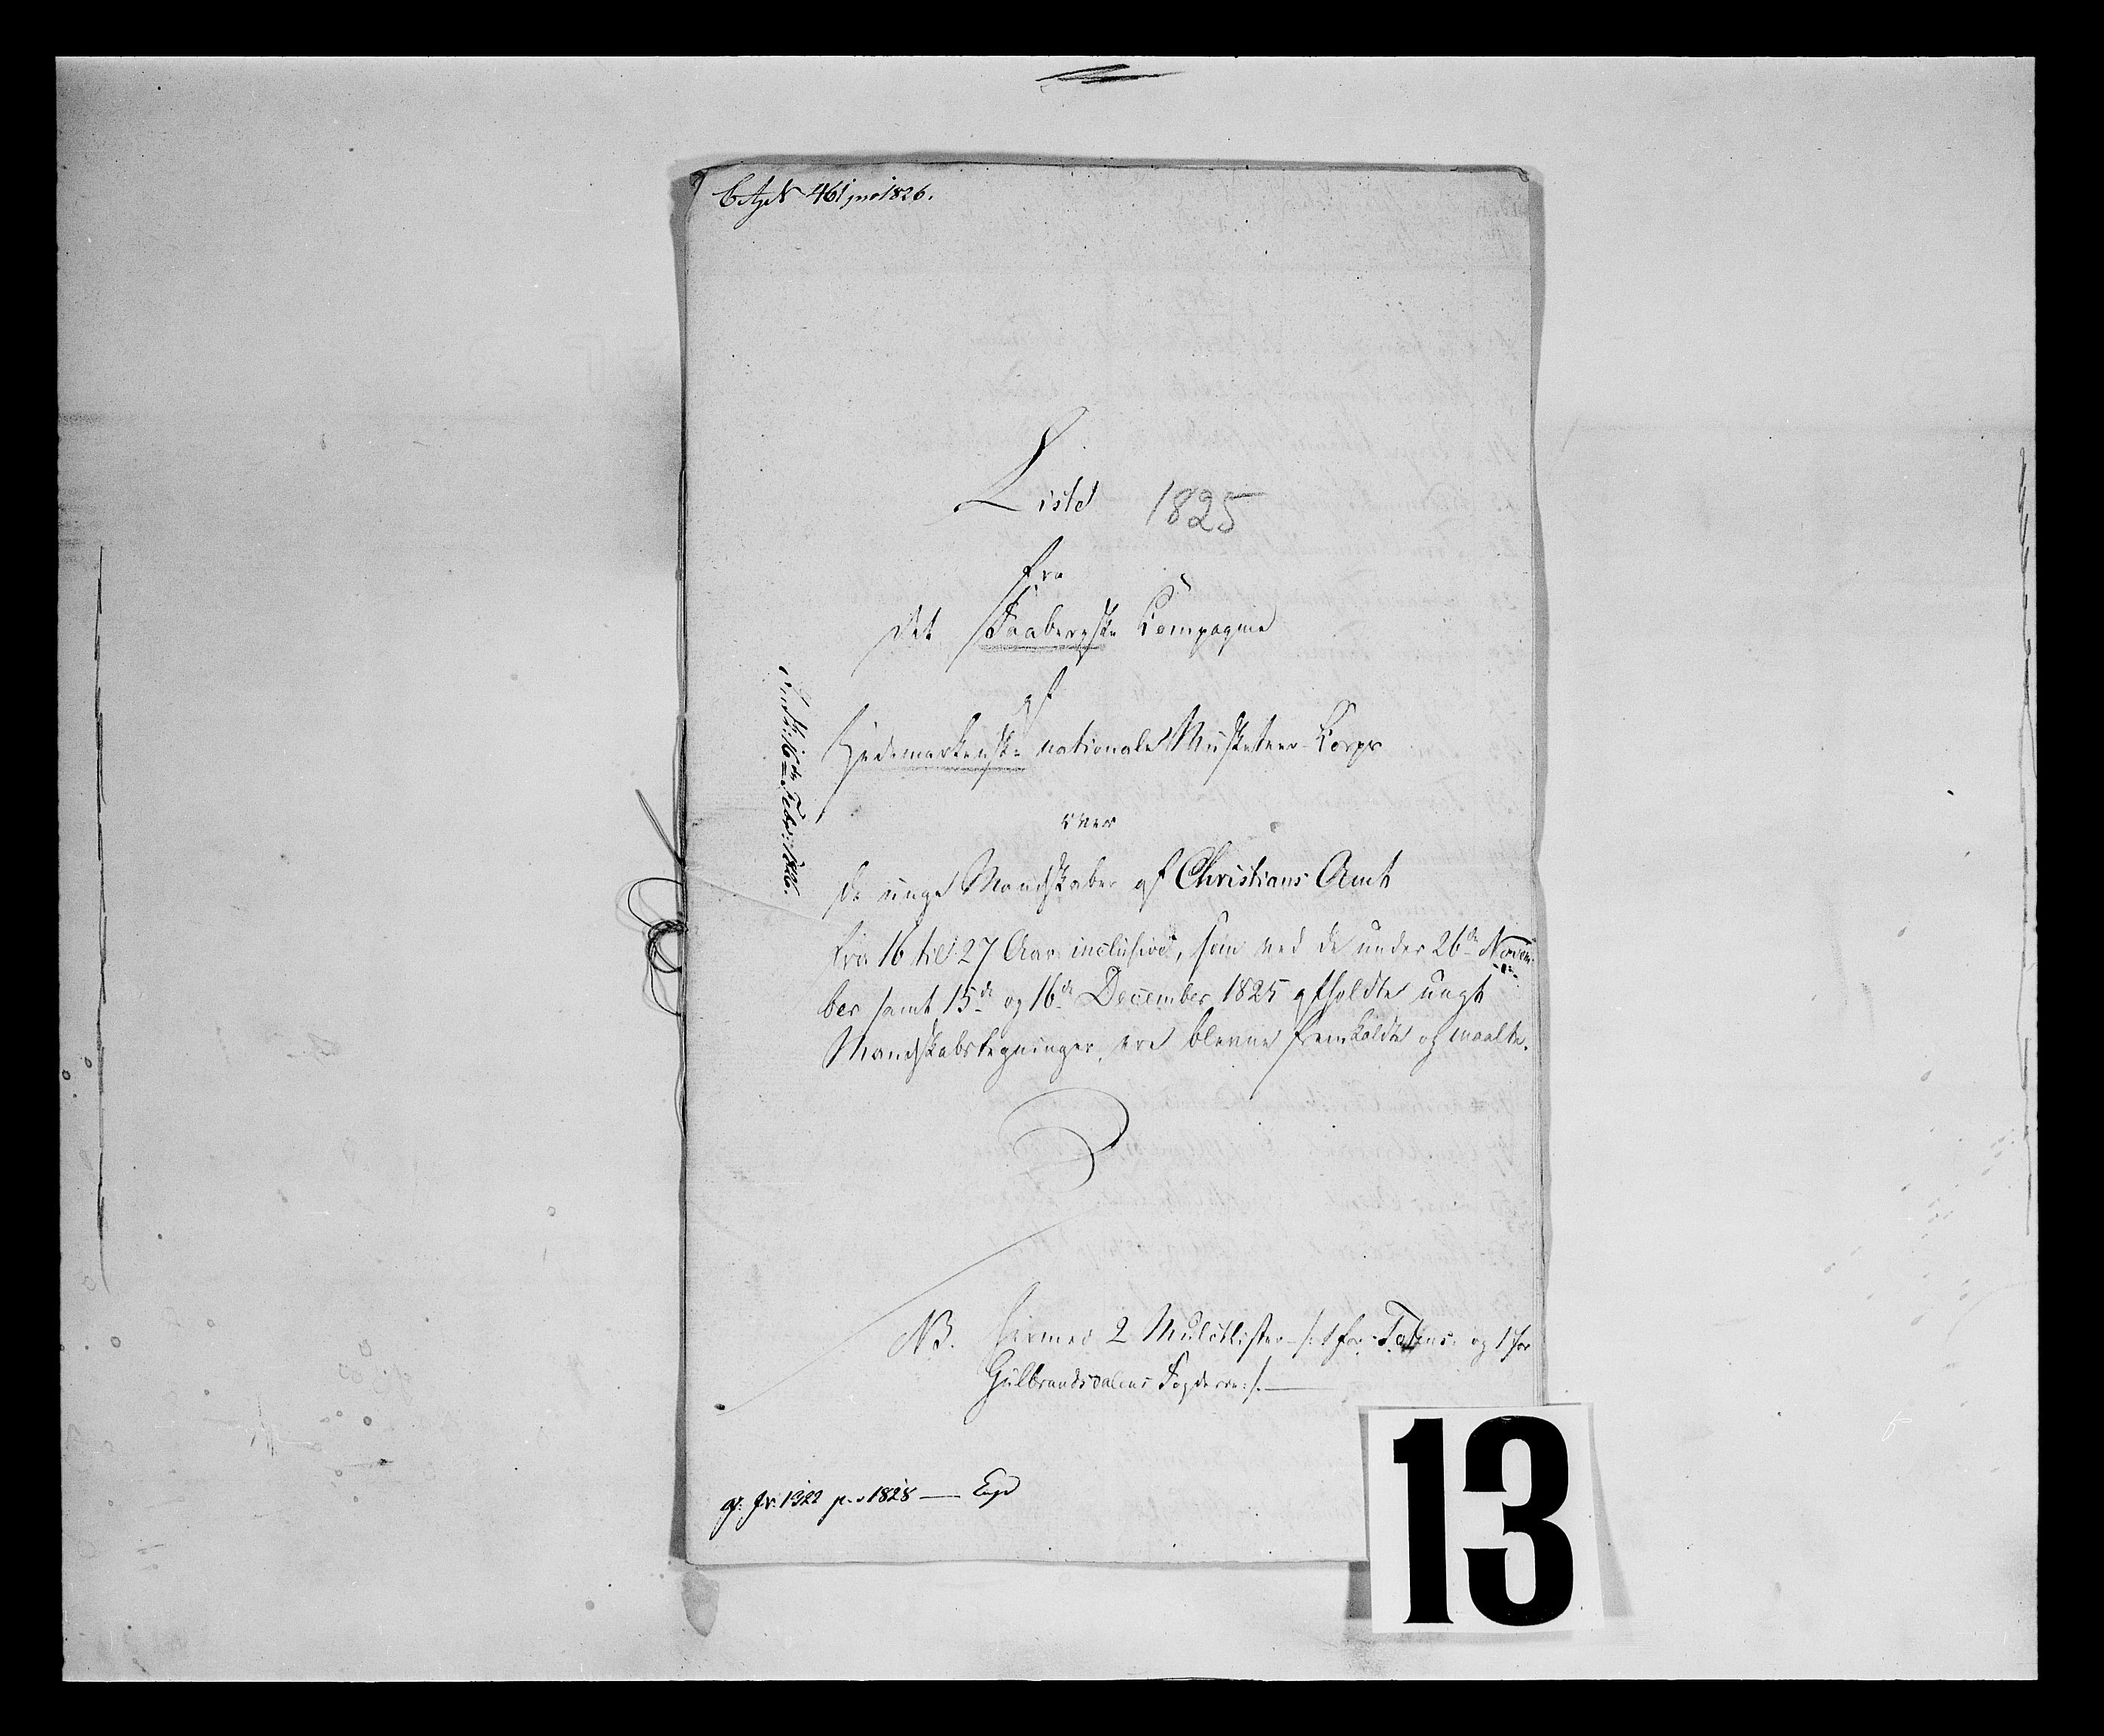 No 461 pro 1826.
Liste 1825
fra
det Faabergske Compagnie
af
Hedemarkenske nationale Musketeer-Corps
over
de unge Mandskaber af Christians Amt
fra 16 til 27 Aar inclusive, som ved de under 26de Novem-
ber samt 15de og 16de December 1825 afholdte ungt
Mandskabstegninger, ere blevne fremkaldte og maalte.
16de Febr: 1826.
NB. Hermed 2 Mulctlister /: 1 for Totens og 1 for
Gulbrandsdalens Fogderie :/.
1322 pro 1828 —
13